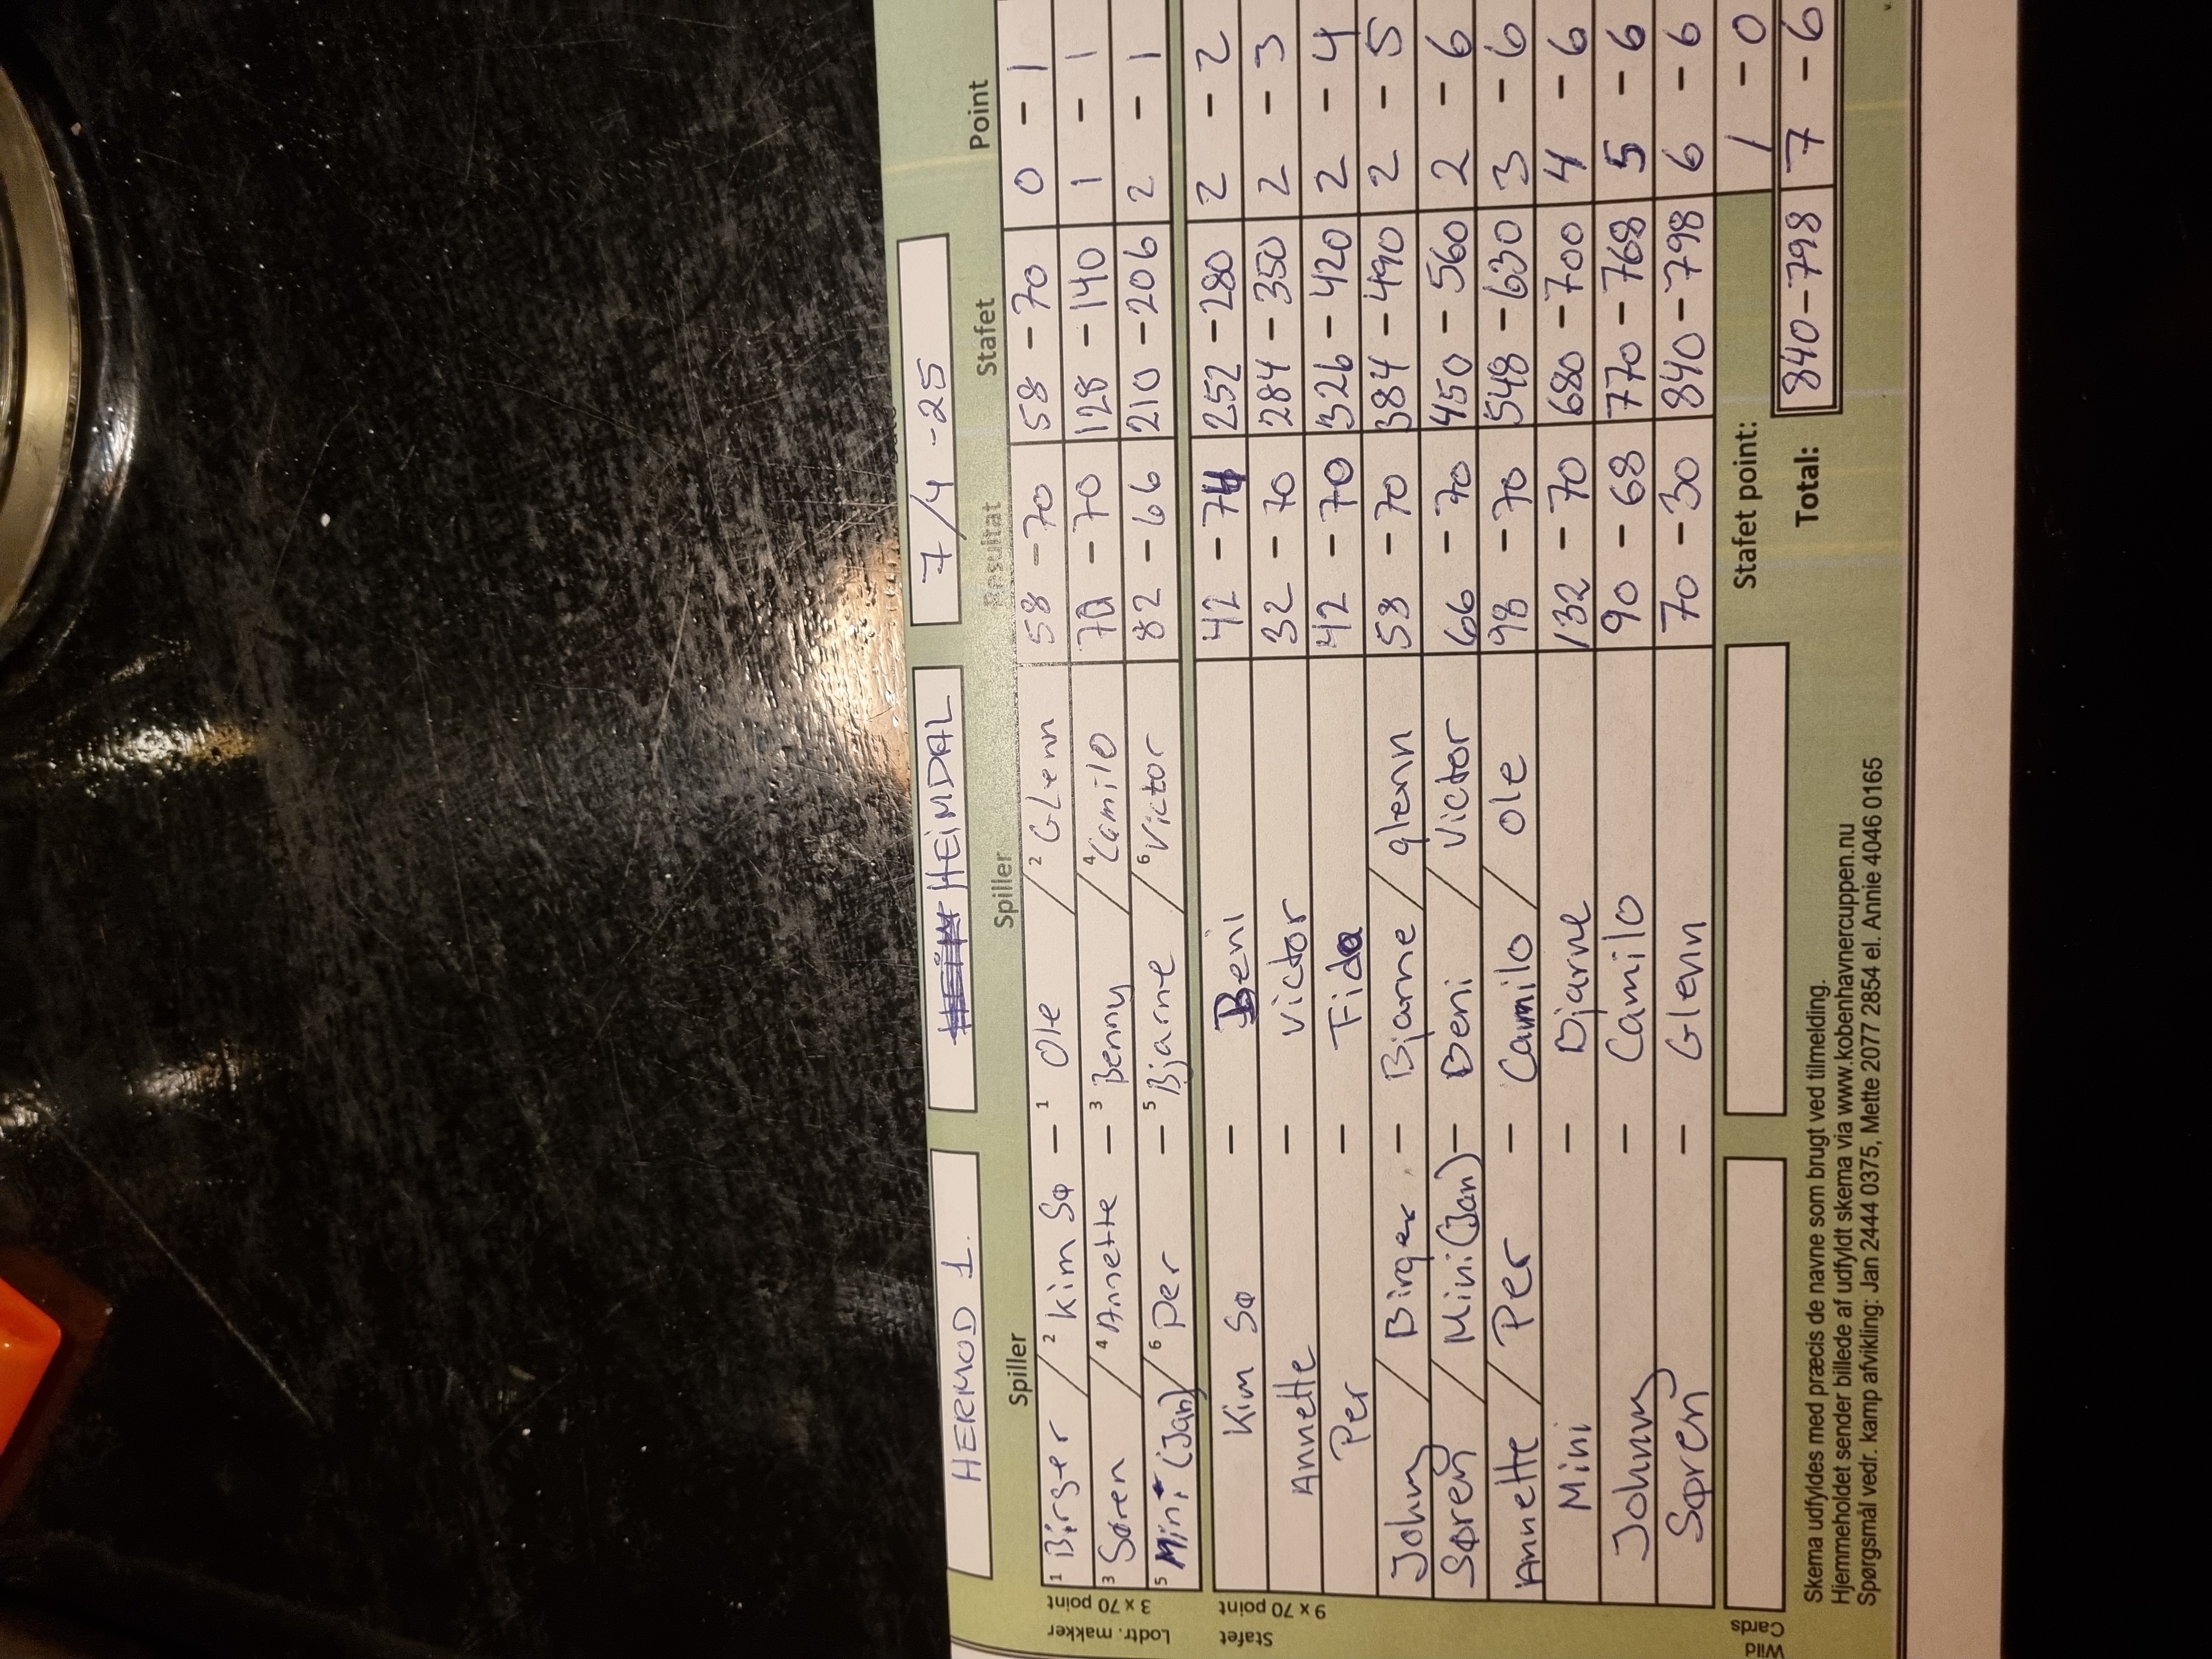 HERMOD 1. HEIMDAL 7/4-25
Spiller Spiller Resultat Stafet Point
Lodtr. makker 3 x 70 point
1 Birger / 2 Kim Sø – 1 Ole / 2 Glenn 58 - 70 58 - 70 0 - 1
3 Søren / 4 Annette – 3 Benny / 4 Camilo 70 - 70 128 - 140 1 - 1
5 Mini (Jan) / 6 Per – 5 Bjarne / 6 Victor 82 - 66 210 - 206 2 - 1
Stafet 9 x 70 point
Kim Sø – Beni 42 - 74 252 - 280 2 - 2
Annette – Victor 32 - 70 284 - 350 2 - 3
Per – Fida 42 - 70 326 - 420 2 - 4
Johnny / Birger – Bjarne / glenn 58 - 70 384 - 490 2 - 5
Søren / Mini (Jan) – Beni / Victor 66 - 70 450 - 560 2 - 6
Annette / Per – Camilo / Ole 98 - 70 548 - 630 3 - 6
Mini – Bjarne 132 - 70 680 - 700 4 - 6
Johnny – Camilo 90 - 68 770 - 768 5 - 6
Søren – Glenn 70 - 30 840 - 798 6 - 6
Wild Cards Stafet point: 1 - 0
Total: 840 - 798 7 - 6
Skema udfyldes med præcis de navne som brugt ved tilmelding.
Hjemmeholdet sender billede af udfyldt skema via www.kobenhavnercuppen.nu
Spørgsmål vedr. kamp afvikling: Jan 2444 0375, Mette 2077 2854 el. Annie 4046 0165